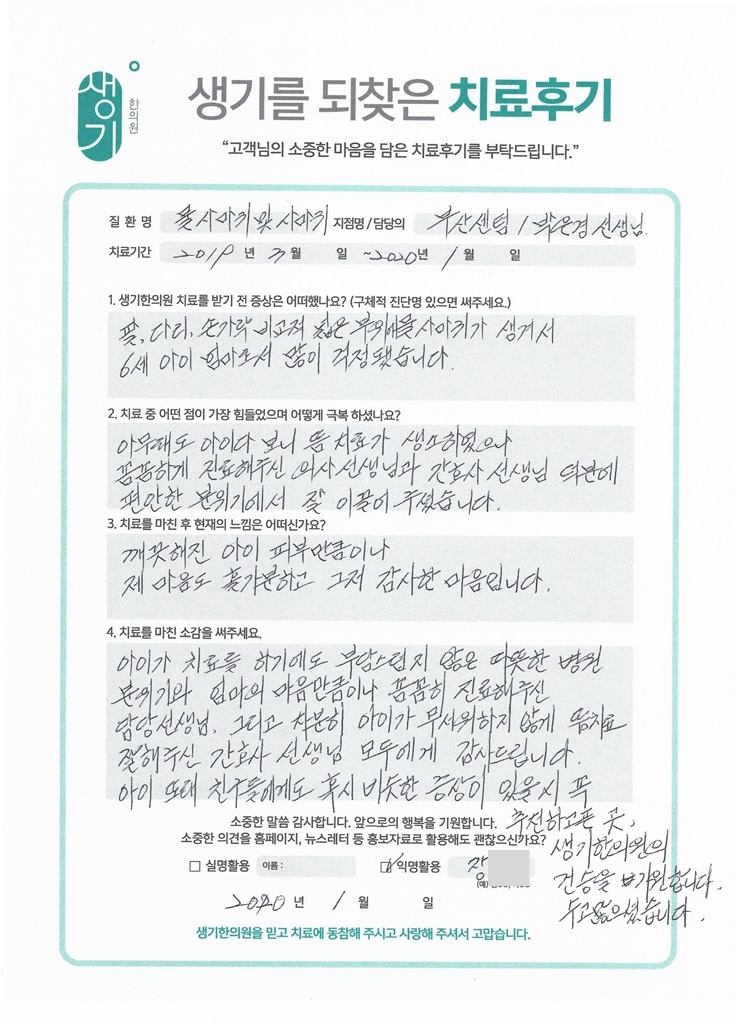 생기
한의원
생기를 되찾은 치료후기
"고객님의 소중한 마음을 담은 치료후기를 부탁드립니다."
질 환 명 물사마귀 및 사마귀 지점명 / 담당의 부산센텀 / 박은경 선생님.
치료기간 2019 년 3 월 일 ~2020 년 1 월 일
1. 생기한의원 치료를 받기 전 증상은 어떠했나요? (구체적 진단명 있으면 써주세요.)
팔, 다리, 손가락 비교적 넓은 부위에 물사마귀가 생겨서
6세 아이 엄마로서 많이 걱정됐습니다.
2. 치료 중 어떤 점이 가장 힘들었으며 어떻게 극복 하셨나요?
아무래도 아이다 보니 뜸 치료가 생소하였으나
꼼꼼하게 진료해주신 의사선생님과 간호사 선생님 덕분에
편안한 분위기에서 잘 이끌어 주셨습니다.
3. 치료를 마친 후 현재의 느낌은 어떠신가요?
깨끗해진 아이 피부만큼이나
제 마음도 홀가분하고 그저 감사한 마음입니다.
4. 치료를 마친 소감을 써주세요.
아이가 치료를 하기에도 부담스럽지 않은 따뜻한 병원
분위기와 엄마의 마음만큼이나 꼼꼼히 진료해주신
담당선생님, 그리고 차분히 아이가 무서워하지 않게 뜸치료
잘해주신 간호사 선생님 모두에게 감사드립니다.
아이 또래 친구들에게도 혹시 비슷한 증상이 있을시 꼭
추천하고픈 곳,
생기한의원의
건승을 기원합니다.
수고많으셨습니다.
소중한 말씀 감사합니다. 앞으로의 행복을 기원합니다.
소중한 의견을 홈페이지, 뉴스레터 등 홍보자료로 활용해도 괜찮으신가요?
실명활용 이름 : 익명활용 장
2020 년 1 월 일
생기한의원을 믿고 치료에 동참해 주시고 사랑해 주셔서 고맙습니다.